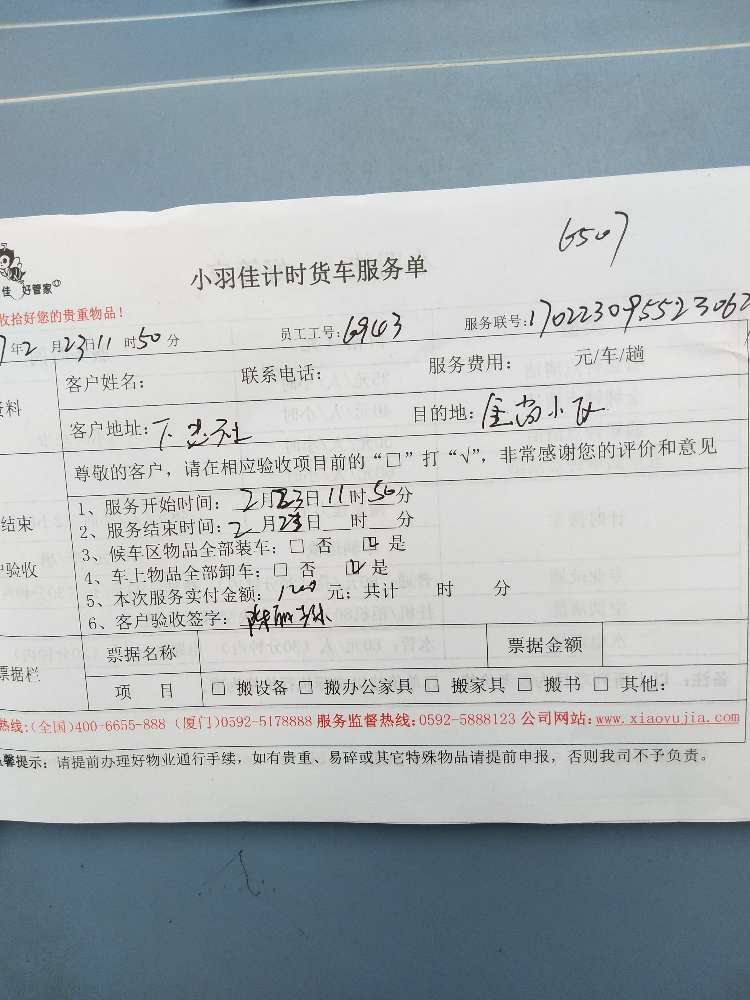 6507
小羽佳计时货车服务单
佳 好管家
收拾好您的贵重物品！
7年2月23日11时50分 员工工号：6943 服务联号：170223095523062
资料 客户姓名： 联系电话： 服务费用： 元/车/趟
客户地址：下忠社 目的地：金尚小区
尊敬的客户，请在相应验收项目前的“□”打“√”，非常感谢您的评价和意见
结束
验收
1、服务开始时间：2月23日11时50分
2、服务结束时间：2月23日__时__分
3、候车区物品全部装车：□ 否 ☑ 是
4、车上物品全部卸车：□ 否 ☑ 是
5、本次服务实付金额：1200元；共计 时 分
6、客户验收签字：
票据栏 票据名称 票据金额
项 目 □ 搬设备 □ 搬办公家具 □ 搬家具 □ 搬书 □ 其他：
热线：(全国)400-6655-888 (厦门)0592-5178888 服务监督热线：0592-5888123 公司网站：www.xiaoyujia.com
馨提示：请提前办理好物业通行手续，如有贵重、易碎或其它特殊物品请提前申报，否则我司不予负责。